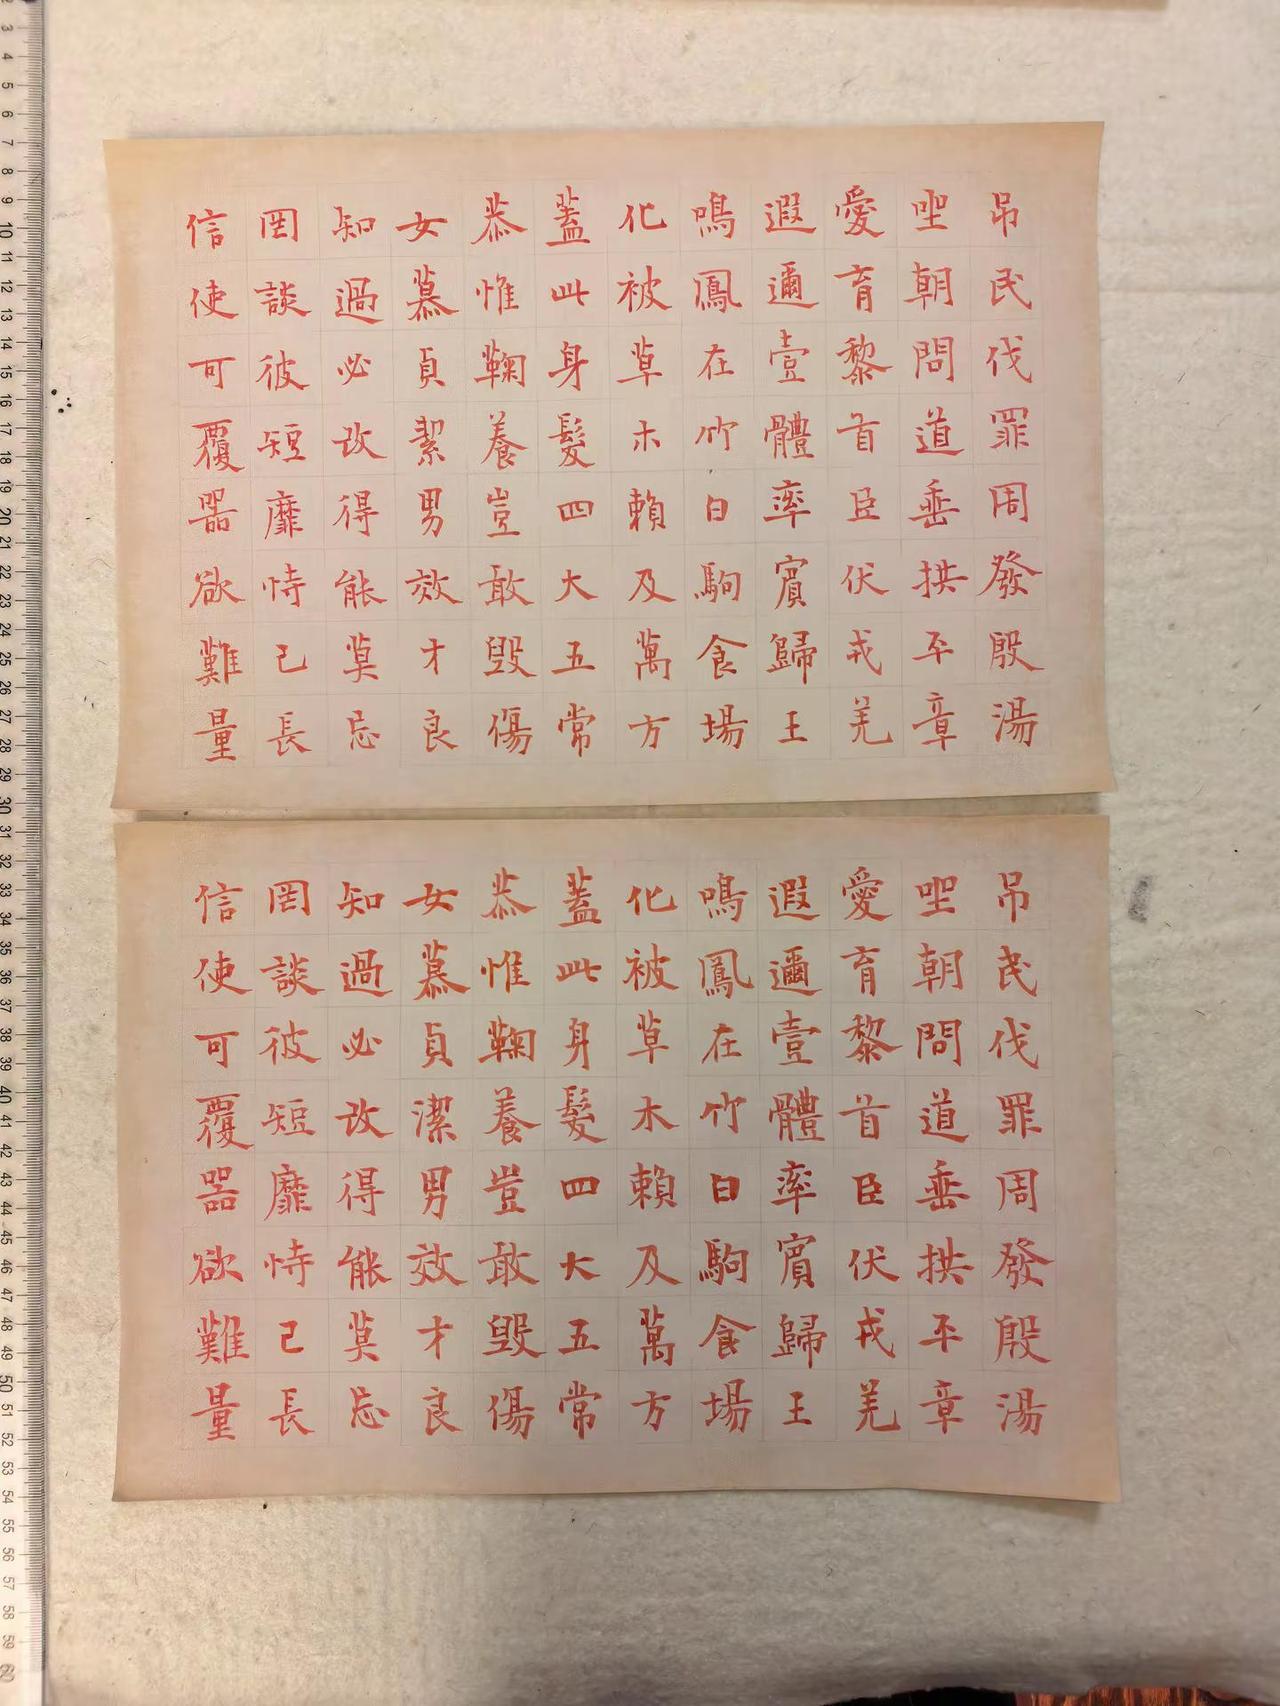 吊民伐罪周發殷湯
坐朝問道垂拱平章
愛育黎首臣伏戎羌
遐邇壹體率賓歸王
鳴鳳在竹白駒食場
化被草木賴及萬方
蓋此身髮四大五常
恭惟鞠養豈敢毀傷
女慕貞絜男效才良
知過必改得能莫忘
罔談彼短靡恃己長
信使可覆器欲難量
吊民伐罪周發殷湯
坐朝問道垂拱平章
愛育黎首臣伏戎羌
遐邇壹體率賓歸王
鳴鳳在竹白駒食場
化被草木賴及萬方
蓋此身髮四大五常
恭惟鞠養豈敢毀傷
女慕貞潔男效才良
知過必改得能莫忘
罔談彼短靡恃己長
信使可覆器欲難量
2
3
4
5
6
7
8
9
10
11
12
13
14
15
16
17
18
19
20
21
22
23
24
25
26
27
28
29
30
31
32
33
34
35
36
37
38
39
40
41
42
43
44
45
46
47
48
49
50
51
52
53
54
55
56
57
58
59
60